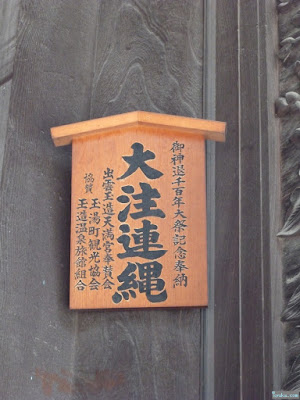 御神退千百年大祭記念奉納
大注連縄
出雲玉造天満宮奉賛会
協賛 玉湯町観光協会
玉造温泉旅館組合